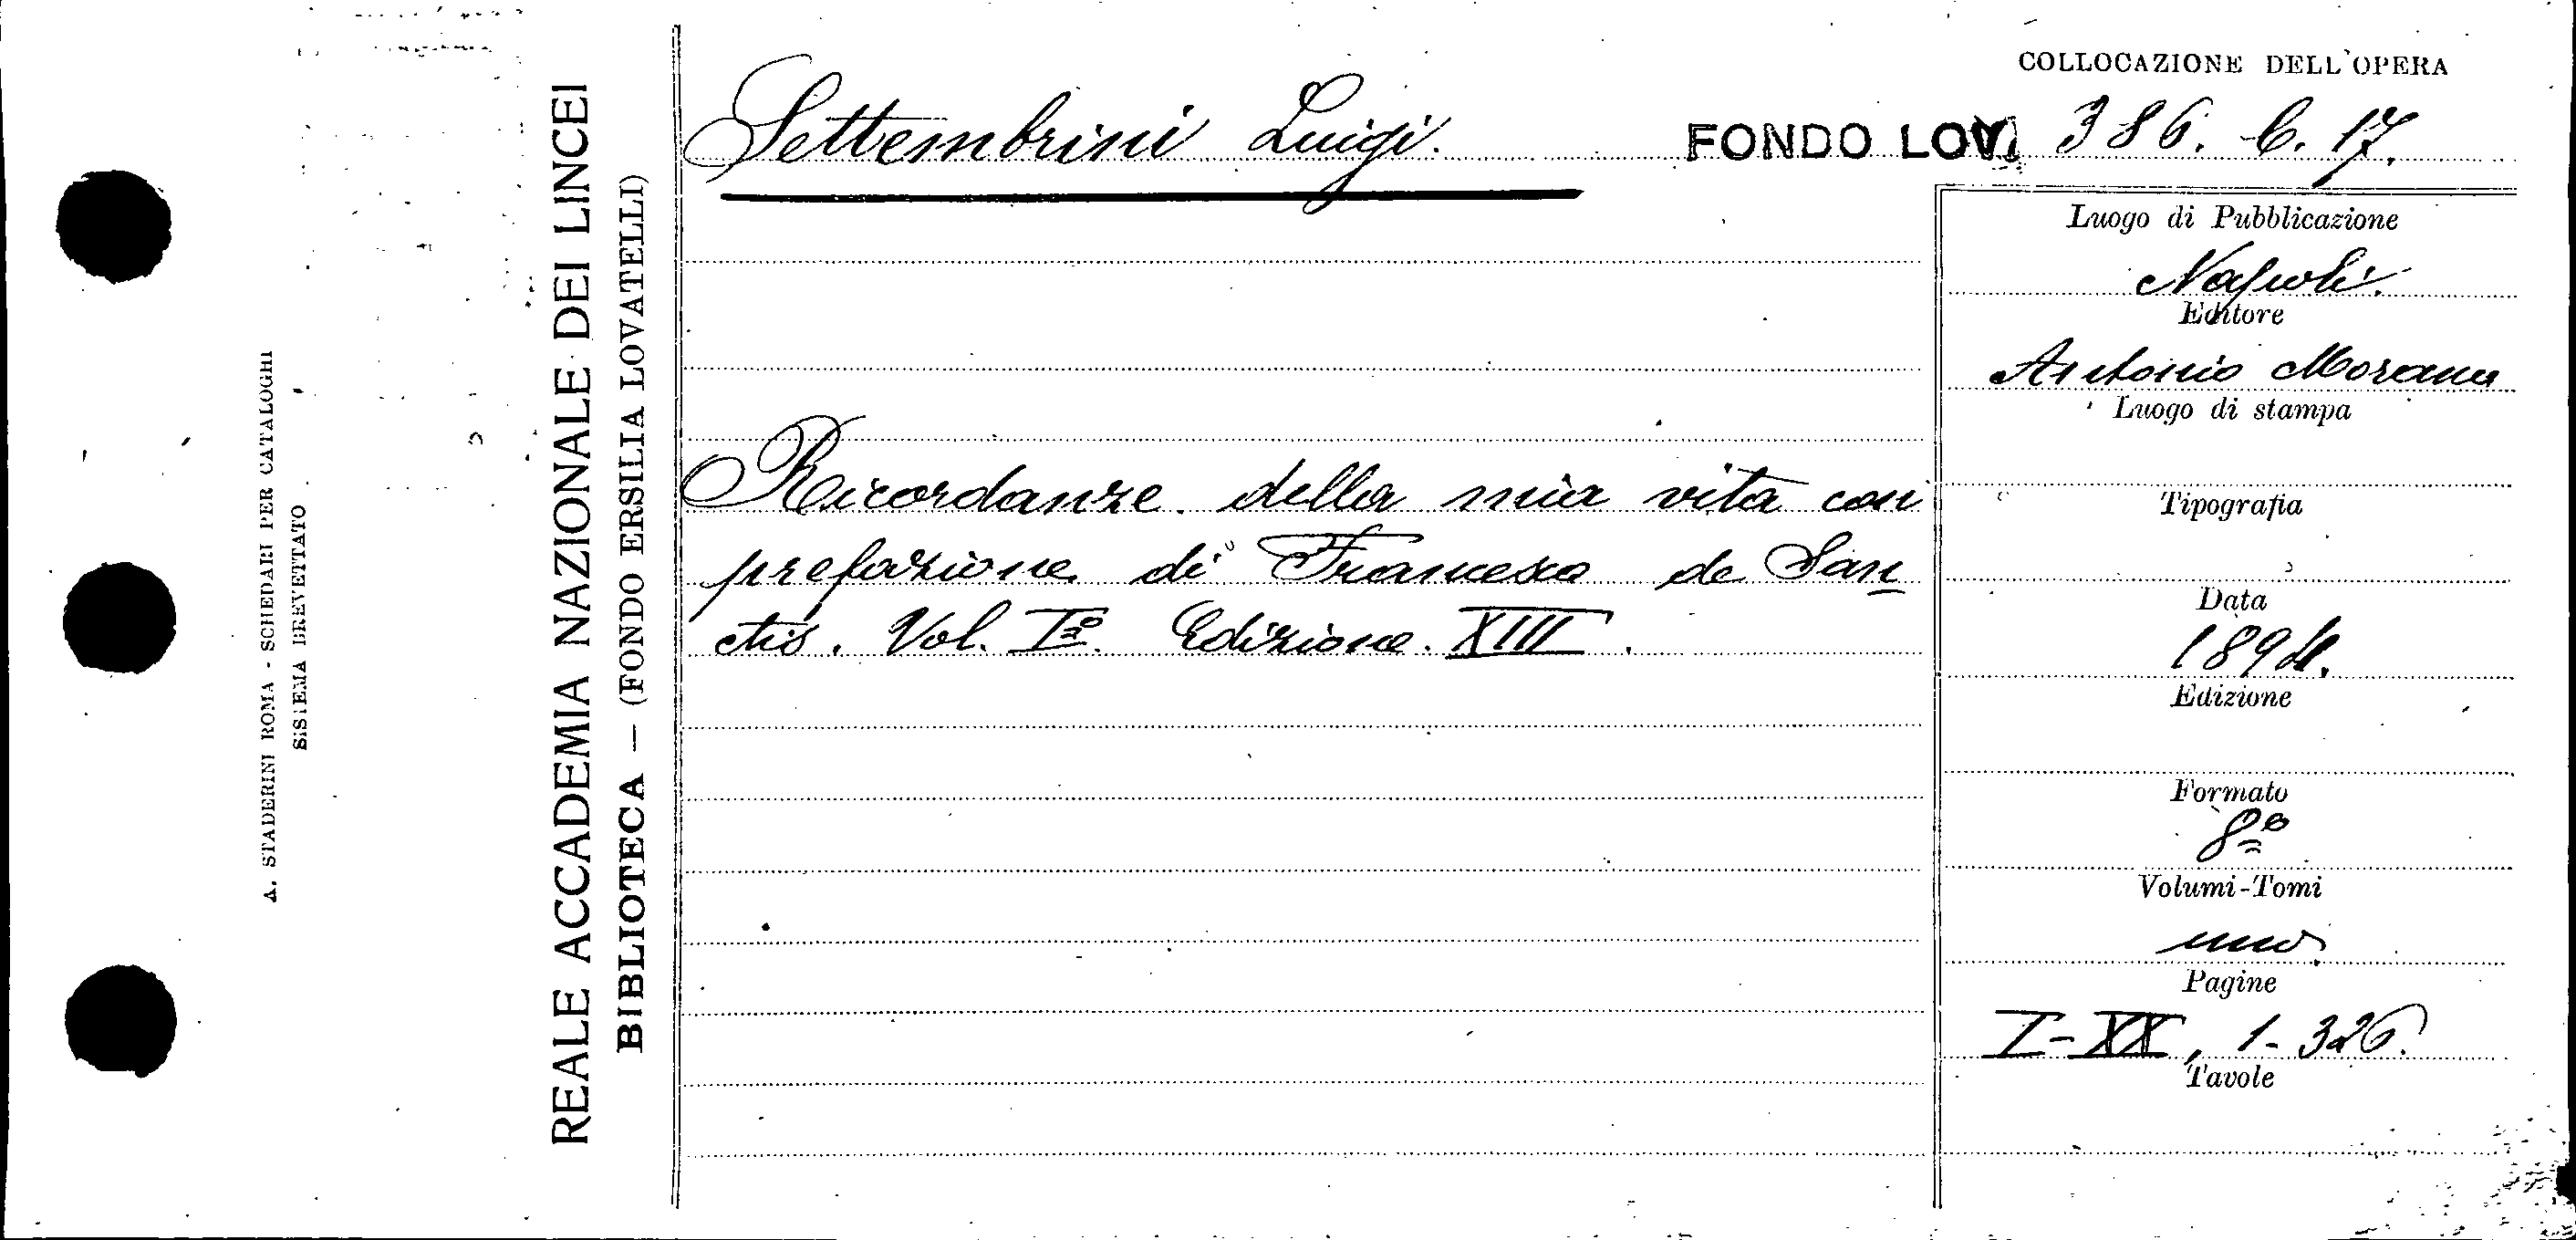 COLLOCAZIONE DELL'OPERA
Settembrini Luigi.
FONDO LOV. 386. C. 17.
Ricordanze della mia vita con
prefazione di Francesco de San
ctis. Vol. Iº. Edizione. XIII.
Luogo di Pubblicazione
Napoli.
Editore
Antonio Morano
Luogo di stampa
Tipografia
Data
1894.
Edizione
Formato
8º
Volumi-Tomi
uno.
Pagine
I-XX, 1-326.
Tavole
REALE ACCADEMIA NAZIONALE DEI LINCEI
BIBLIOTECA — (FONDO ERSILIA LOVATELLI)
A. STADERINI ROMA - SCHEDARI PER CATALOGHI
SISTEMA BREVETTATO